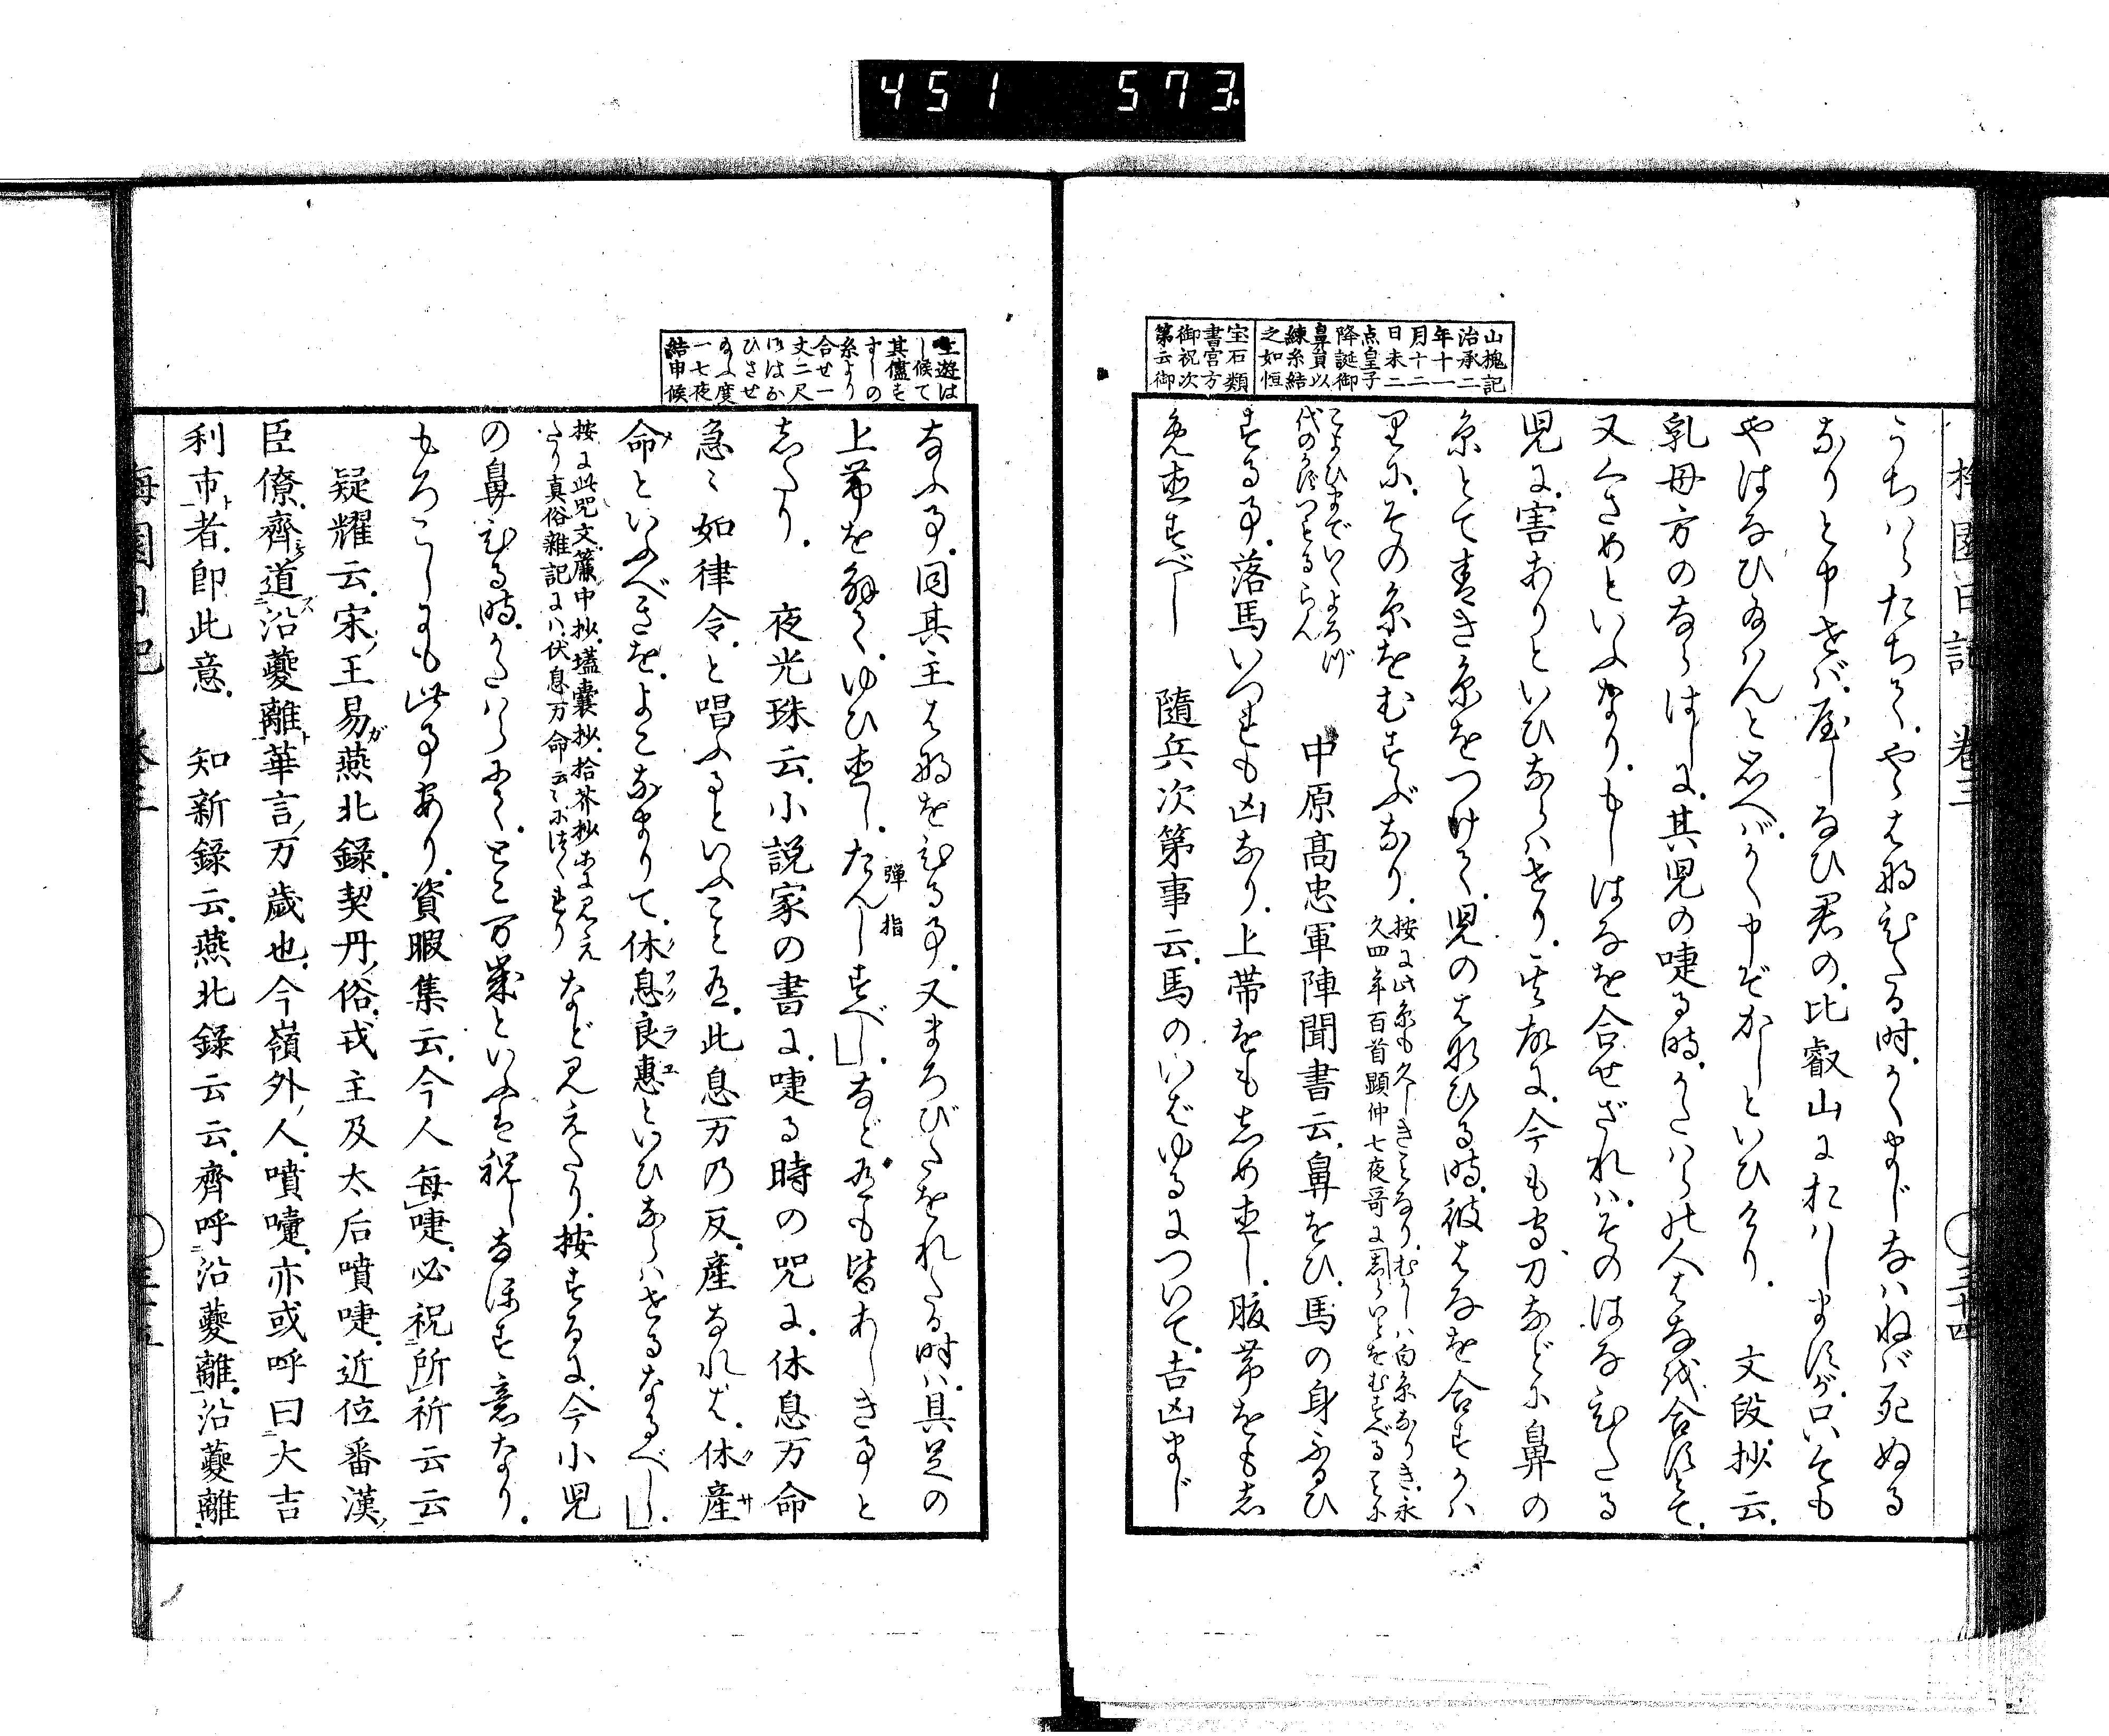 451 573
山槐記
治承二
年十一
月十二
日未二
点皇子
降誕御
鼻負以
練糸結
之如恒
宝石類
書宮方
御祝次
第云御
うちはらたちて、やゝはなひたる時、かくまじなはねば死ぬる
なりと申せば、屋しなひ君の、比叡山におはしますが、只いまも
やはなひ給はんと思へば、かく申ぞかしといひけり。 文段抄云、
乳母方のならはしに、其児の啑る時、かたはらの人はなを合すとて、
又くさめといふなり、もしはなを合せざれは、そのはなひたる
児に、害ありといひならはせり、其故に、今も守刀などに鼻の
糸とて青き糸をつけて、児のはなひる時、彼はなを合すかは
りに、その糸をむすぶなり、
按に此糸も久しきことなり、むかしは白糸なりき、永
久四年百首顕仲七夜哥に君かいとをむすべることに
こよひまでいくよろづ
代のかずつもるらん
中原高忠軍陣聞書云、鼻をひ、馬の身ふるひ
する事、落馬いつれも凶なり、上帯をもしめ直し、腹帯をもし
め直すべし 隨兵次第事云、馬のいばゆるについて、吉凶まじ
梅園日記 卷三 三十四
生遊は
し候て
其儘す
ずしの
糸より
合せ一
丈二尺
ひさせ
一七夜
結申候
なふ事、同其主はなをひる事、又まろびたをれたる時は、具足の
上帯を解て、ゆひ直し、たんしすべし」など、是も皆あしき事と
彈指
したり、 夜光珠云、小説家の書に、啑る時の咒に、休息万命
急〻如律令、と唱ふるといふこと有、此息万の反、産なれば、休産
命といふべきを、よこなまりて、休息良惠といひならはせるなるべし」、
按に此咒文、簾中抄、壒囊抄、拾芥抄等に見え
たり真俗雜記には伏息万命云〻に作れり
など見えたり、按するに、今小児
の鼻ひる時、かたはらにて、とこ万歳といふは祝しなほす意なり、
もろこしにも此事あり、資暇集云、今人每啑、必祝所祈云云
疑耀云、宋王易燕北錄、契丹俗、戎主及太后噴啑、近位番漢
臣僚、齊道沿夔離、華言万歲也、今嶺外人、噴嚏、亦或呼曰大吉
利市者、即此意、 知新錄云、燕北錄云云、齊呼沿夔離、沿夔離
梅園日記 卷三 三十五